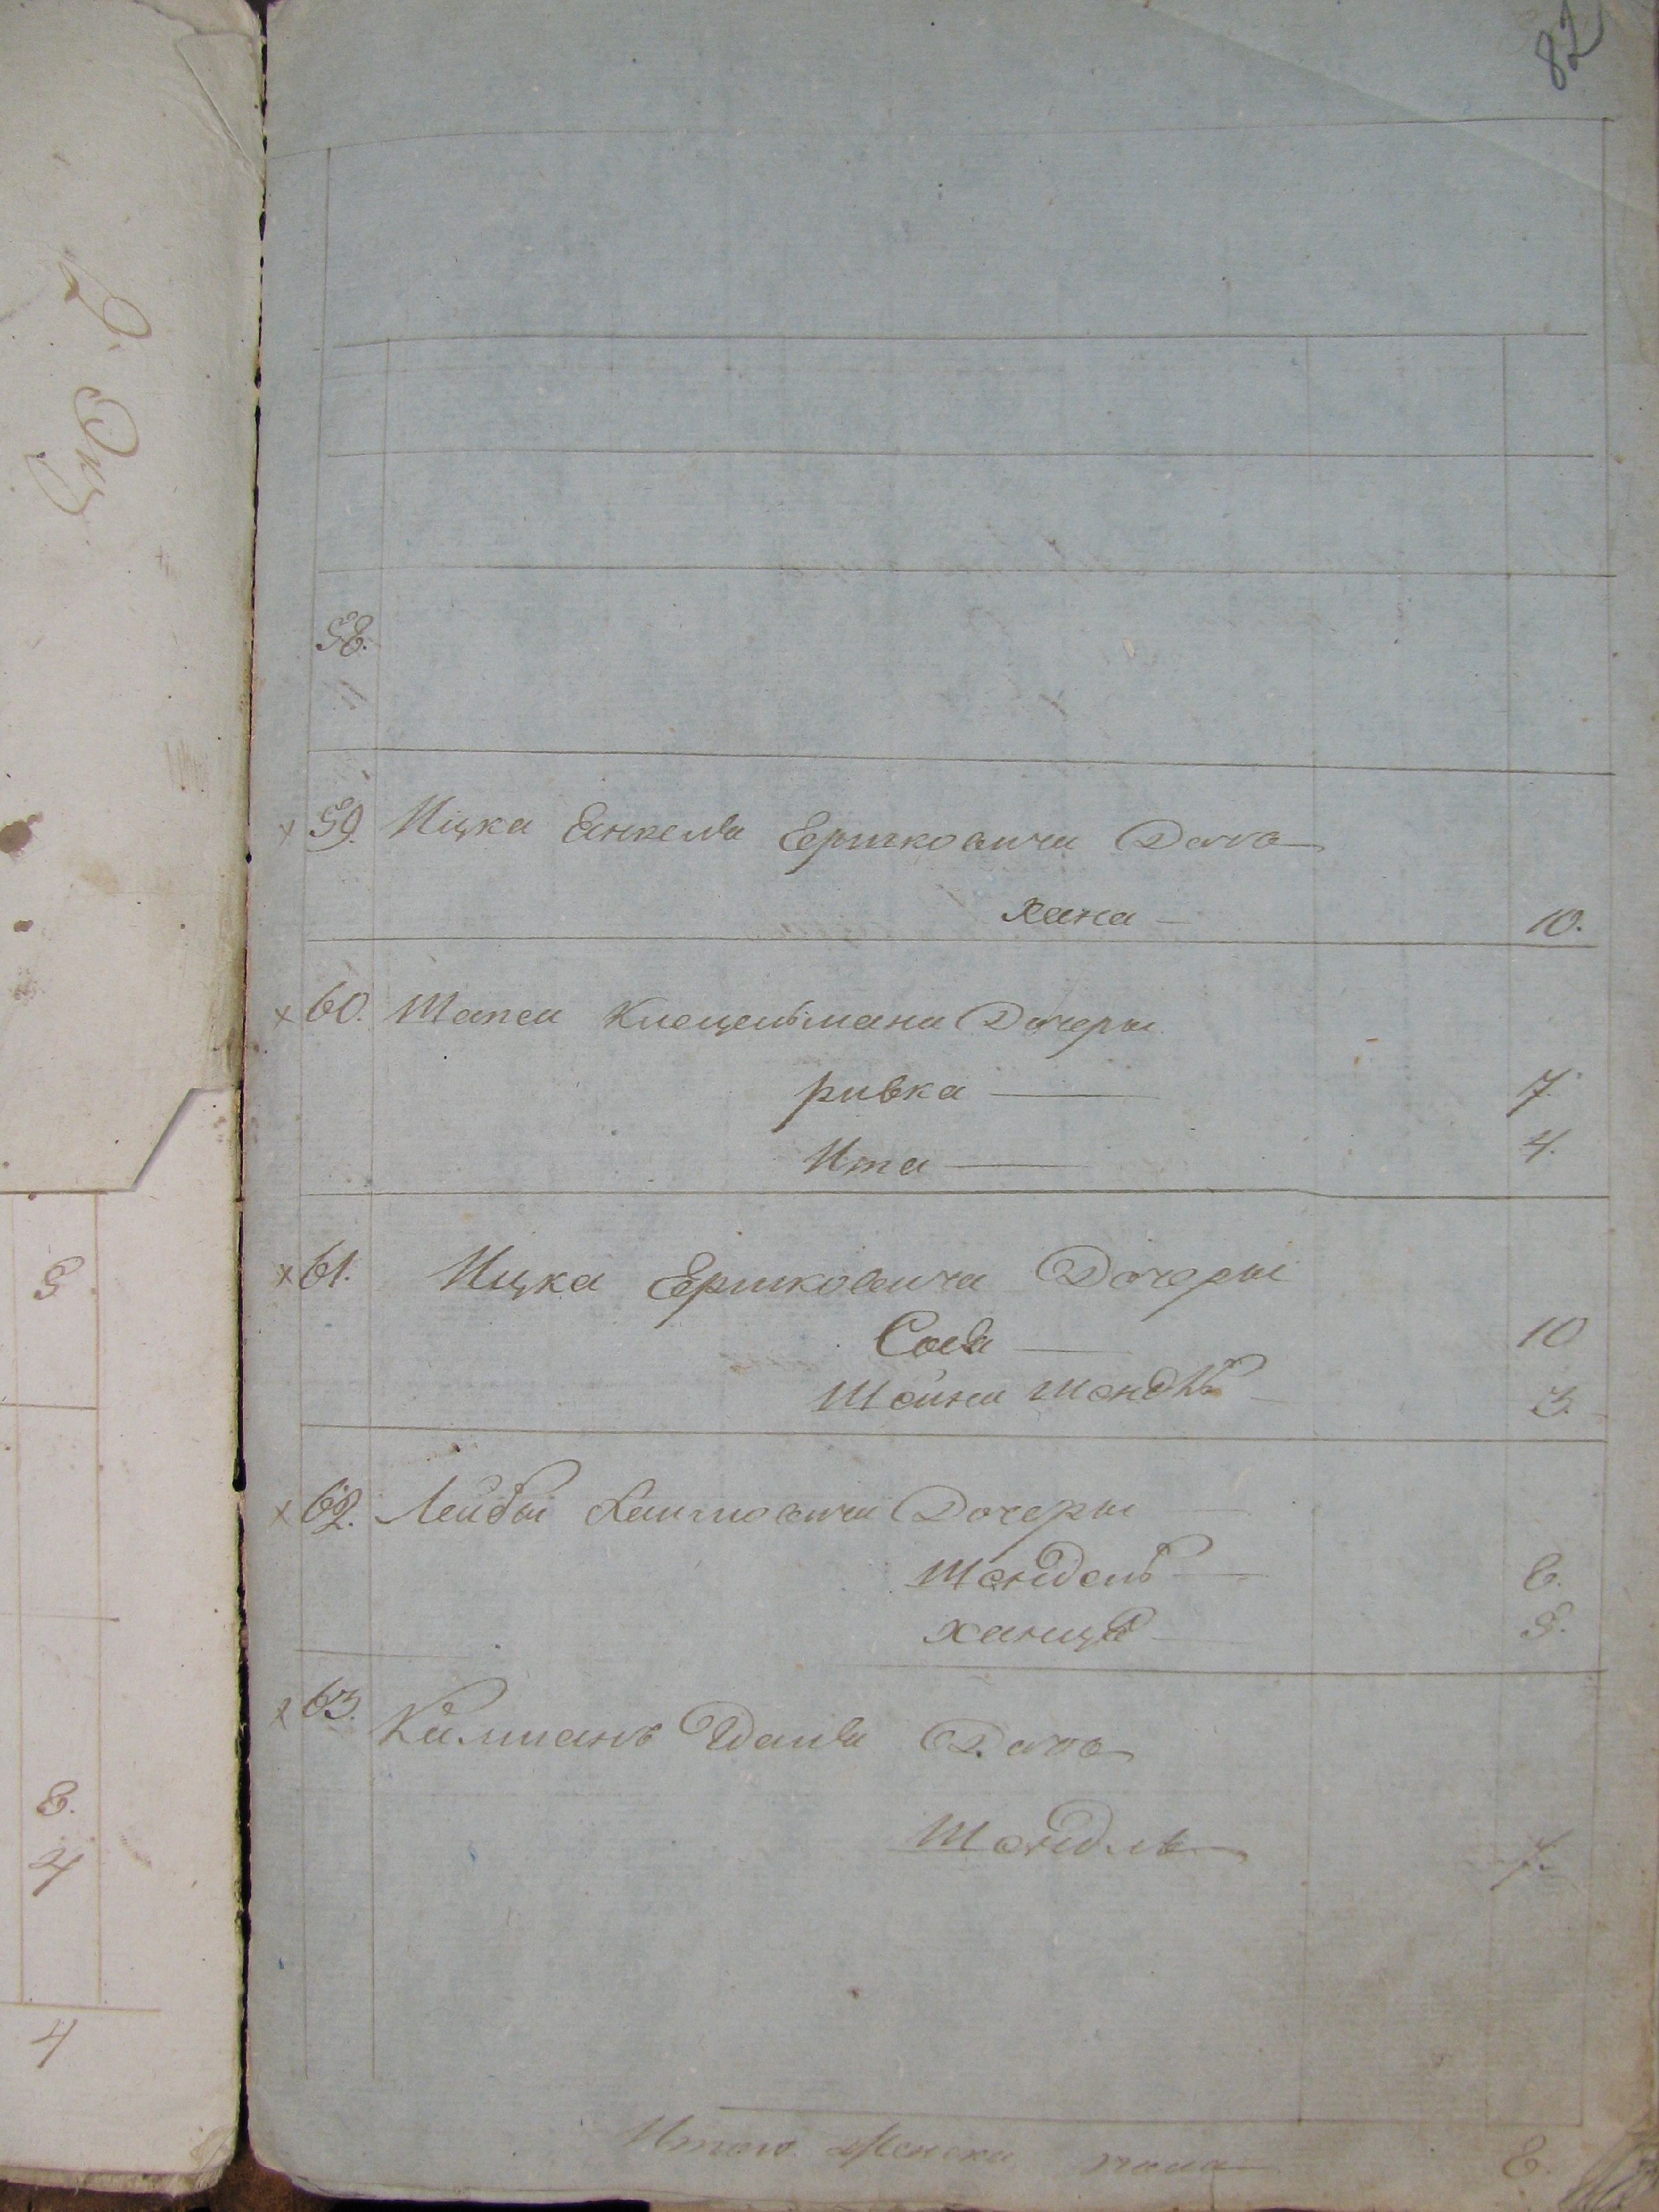 82
58.
59. Ицка Янкеля Ершковича Дочь
Хана 10.
60. Шапса Клецельмана Дочеры
ривка 7.
Ита 4.
61. Ицка Ершковича Дочеры
Сося 10
Шейна шендль 3.
62. Лейбы Хаимовича Дочеры
Шендель 6.
ханця 5.
63. Калмана Дочь
Шендля 7.
Итого женска пола 8.
5
8.
4
4